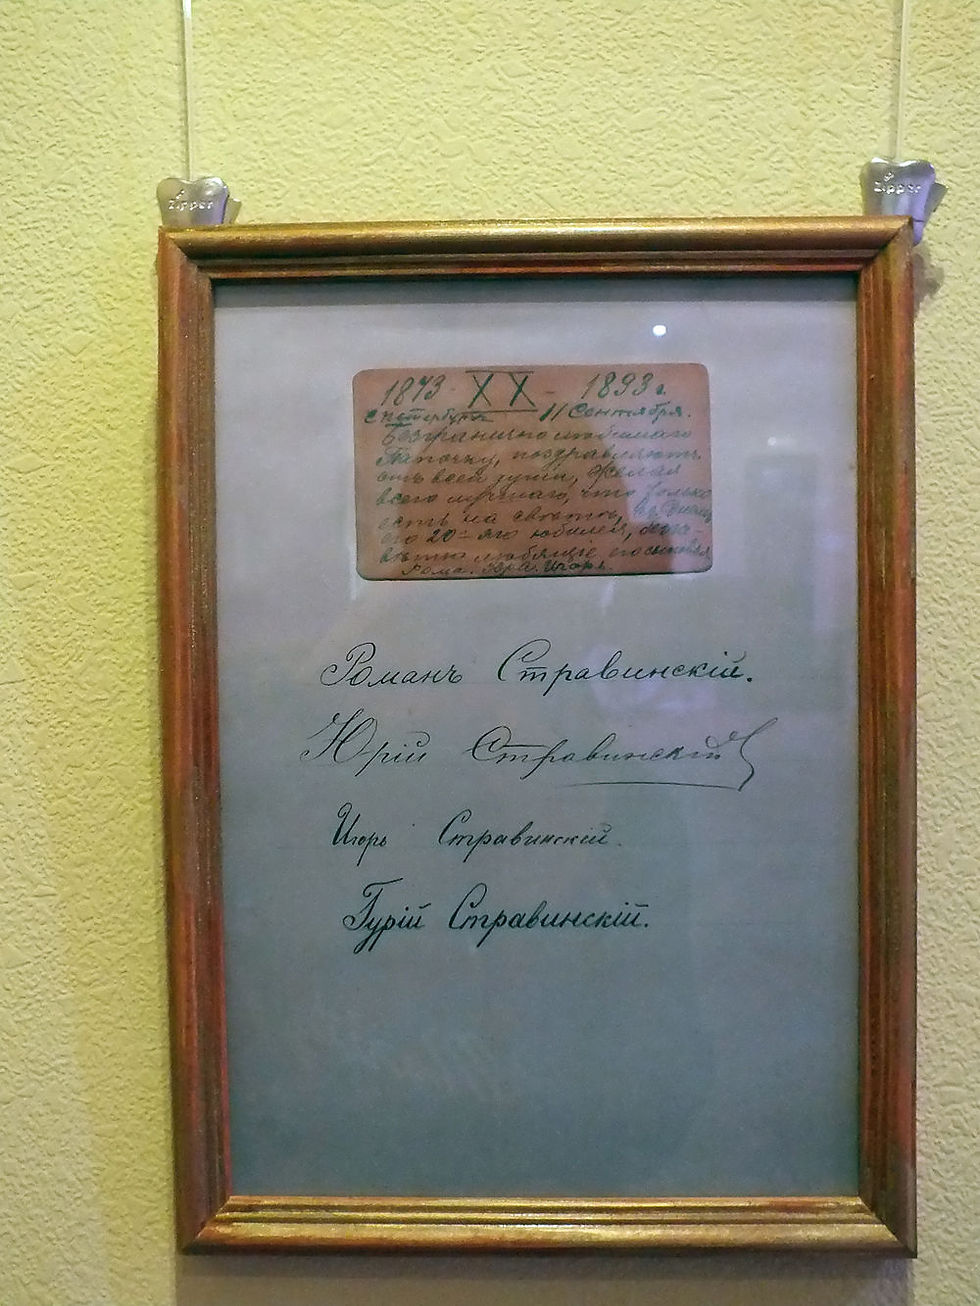 Zipper
Zipper
1873 - XX - 1893 г.
С Петербургъ 11 Сентября.
Безгранично любимаго
Папочку, поздравляютъ
отъ всей души, желая
всего лучшаго, что только
есть на свѣтѣ,
его 20-яго юбилея,
любящіе его сыновья
Рома. Юра. Игорь.
Романъ Стравинскій.
Юрій Стравинскій
Игорь Стравинскій.
Гурій Стравинскій.